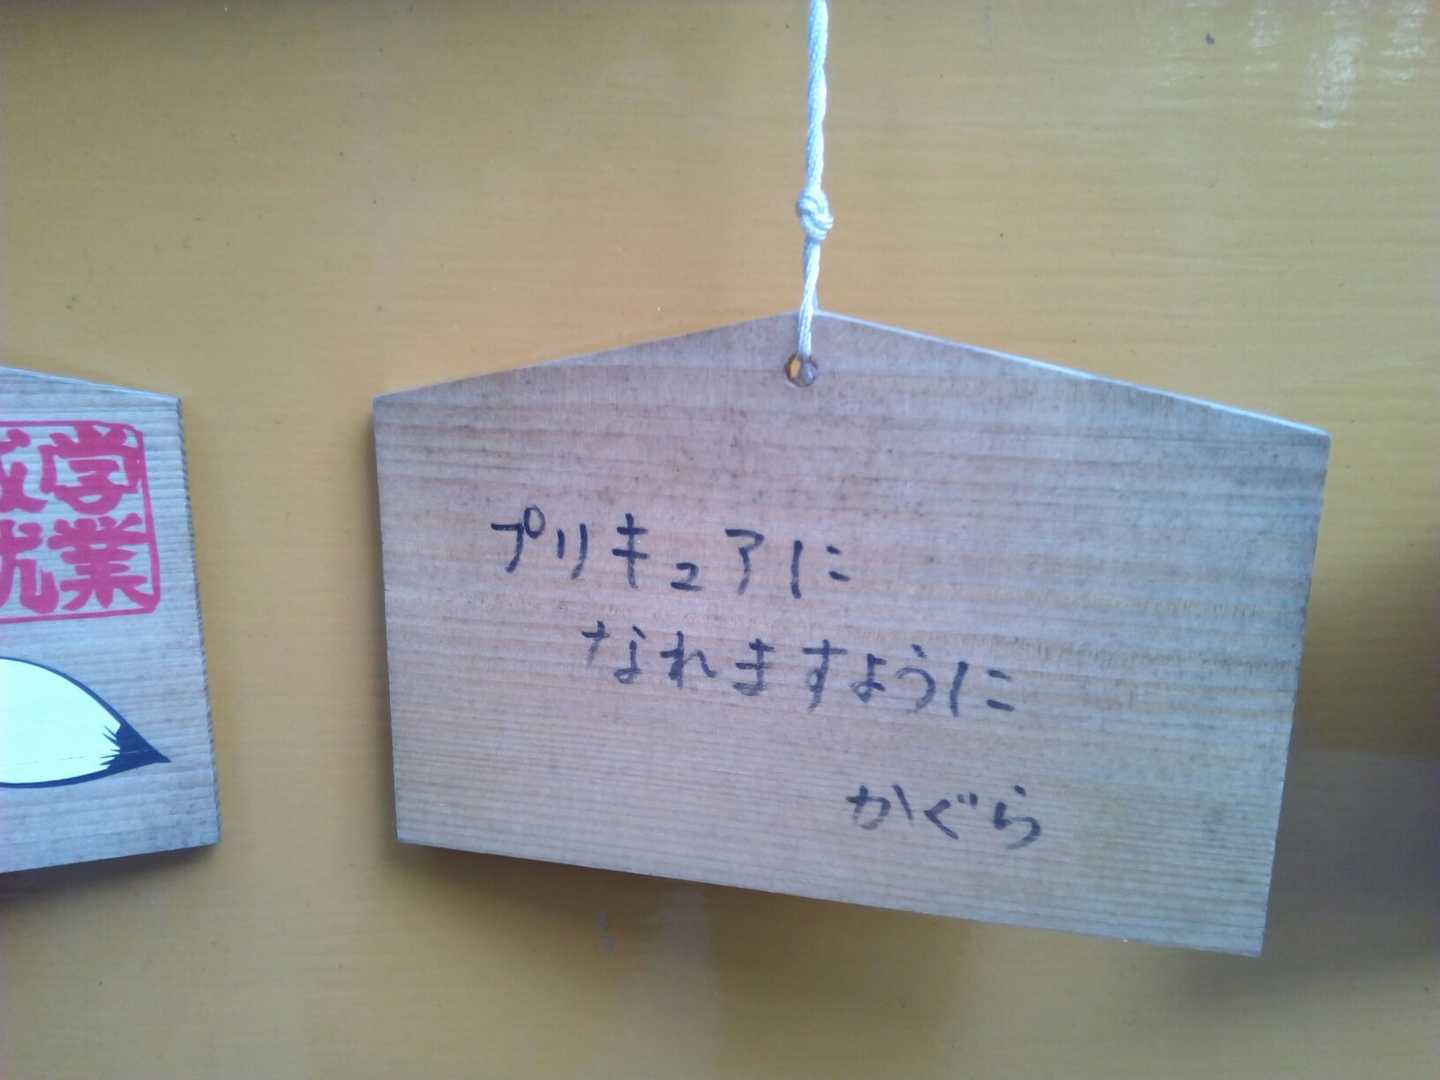 プリキュアに
なれますように
かぐら
学業
成就